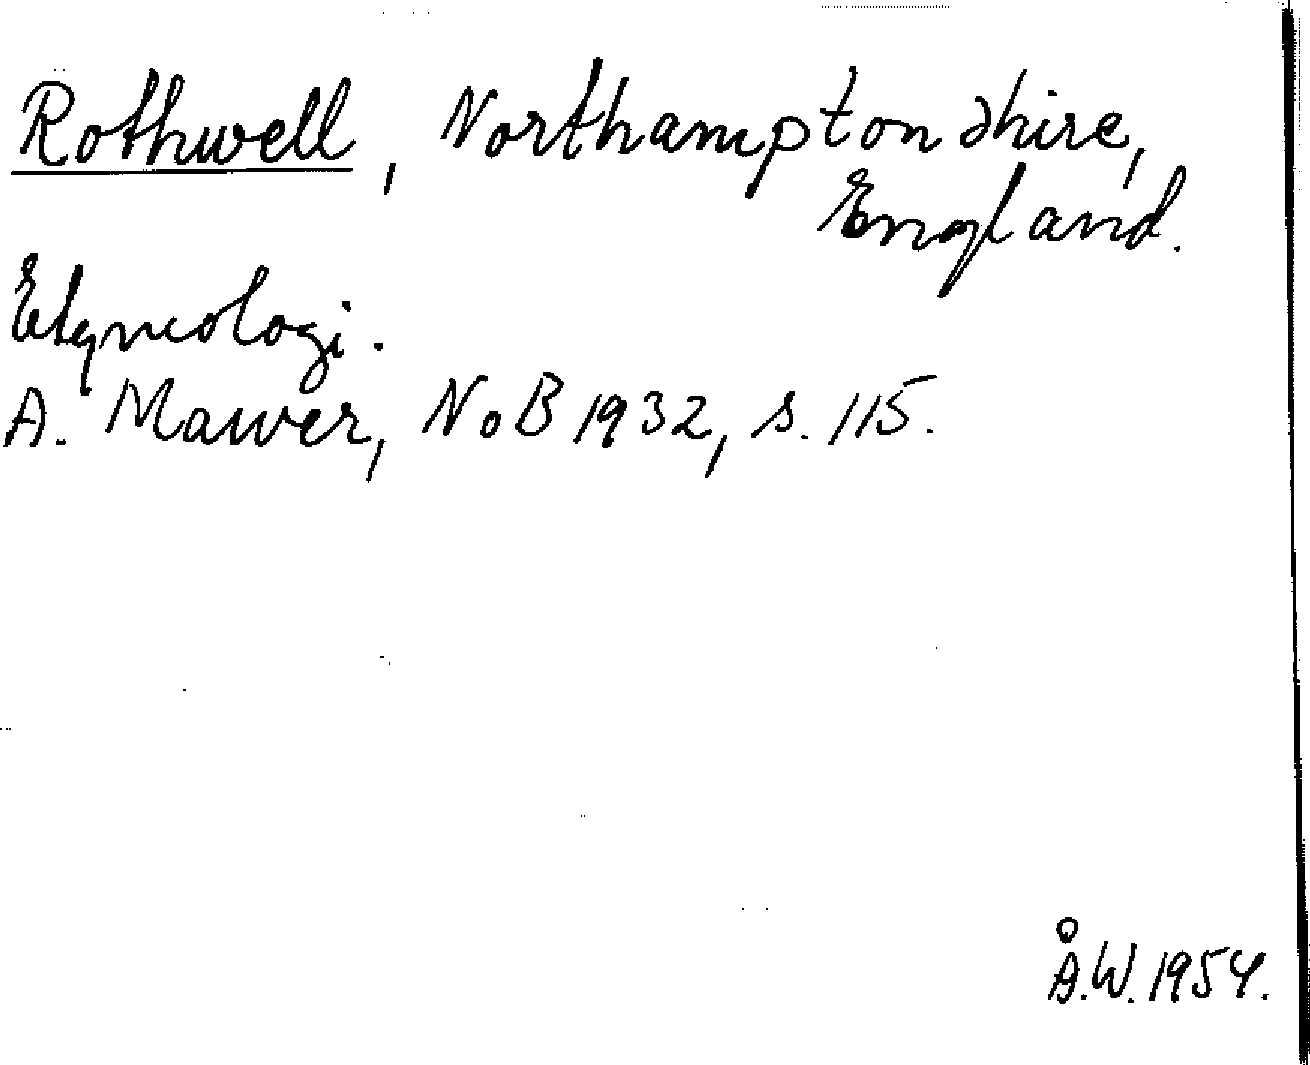 Rothwell, Northamptonshire,
England.
Etymologi.
A. Mawer, NoB 1932, s. 115.
Å.W. 1954.